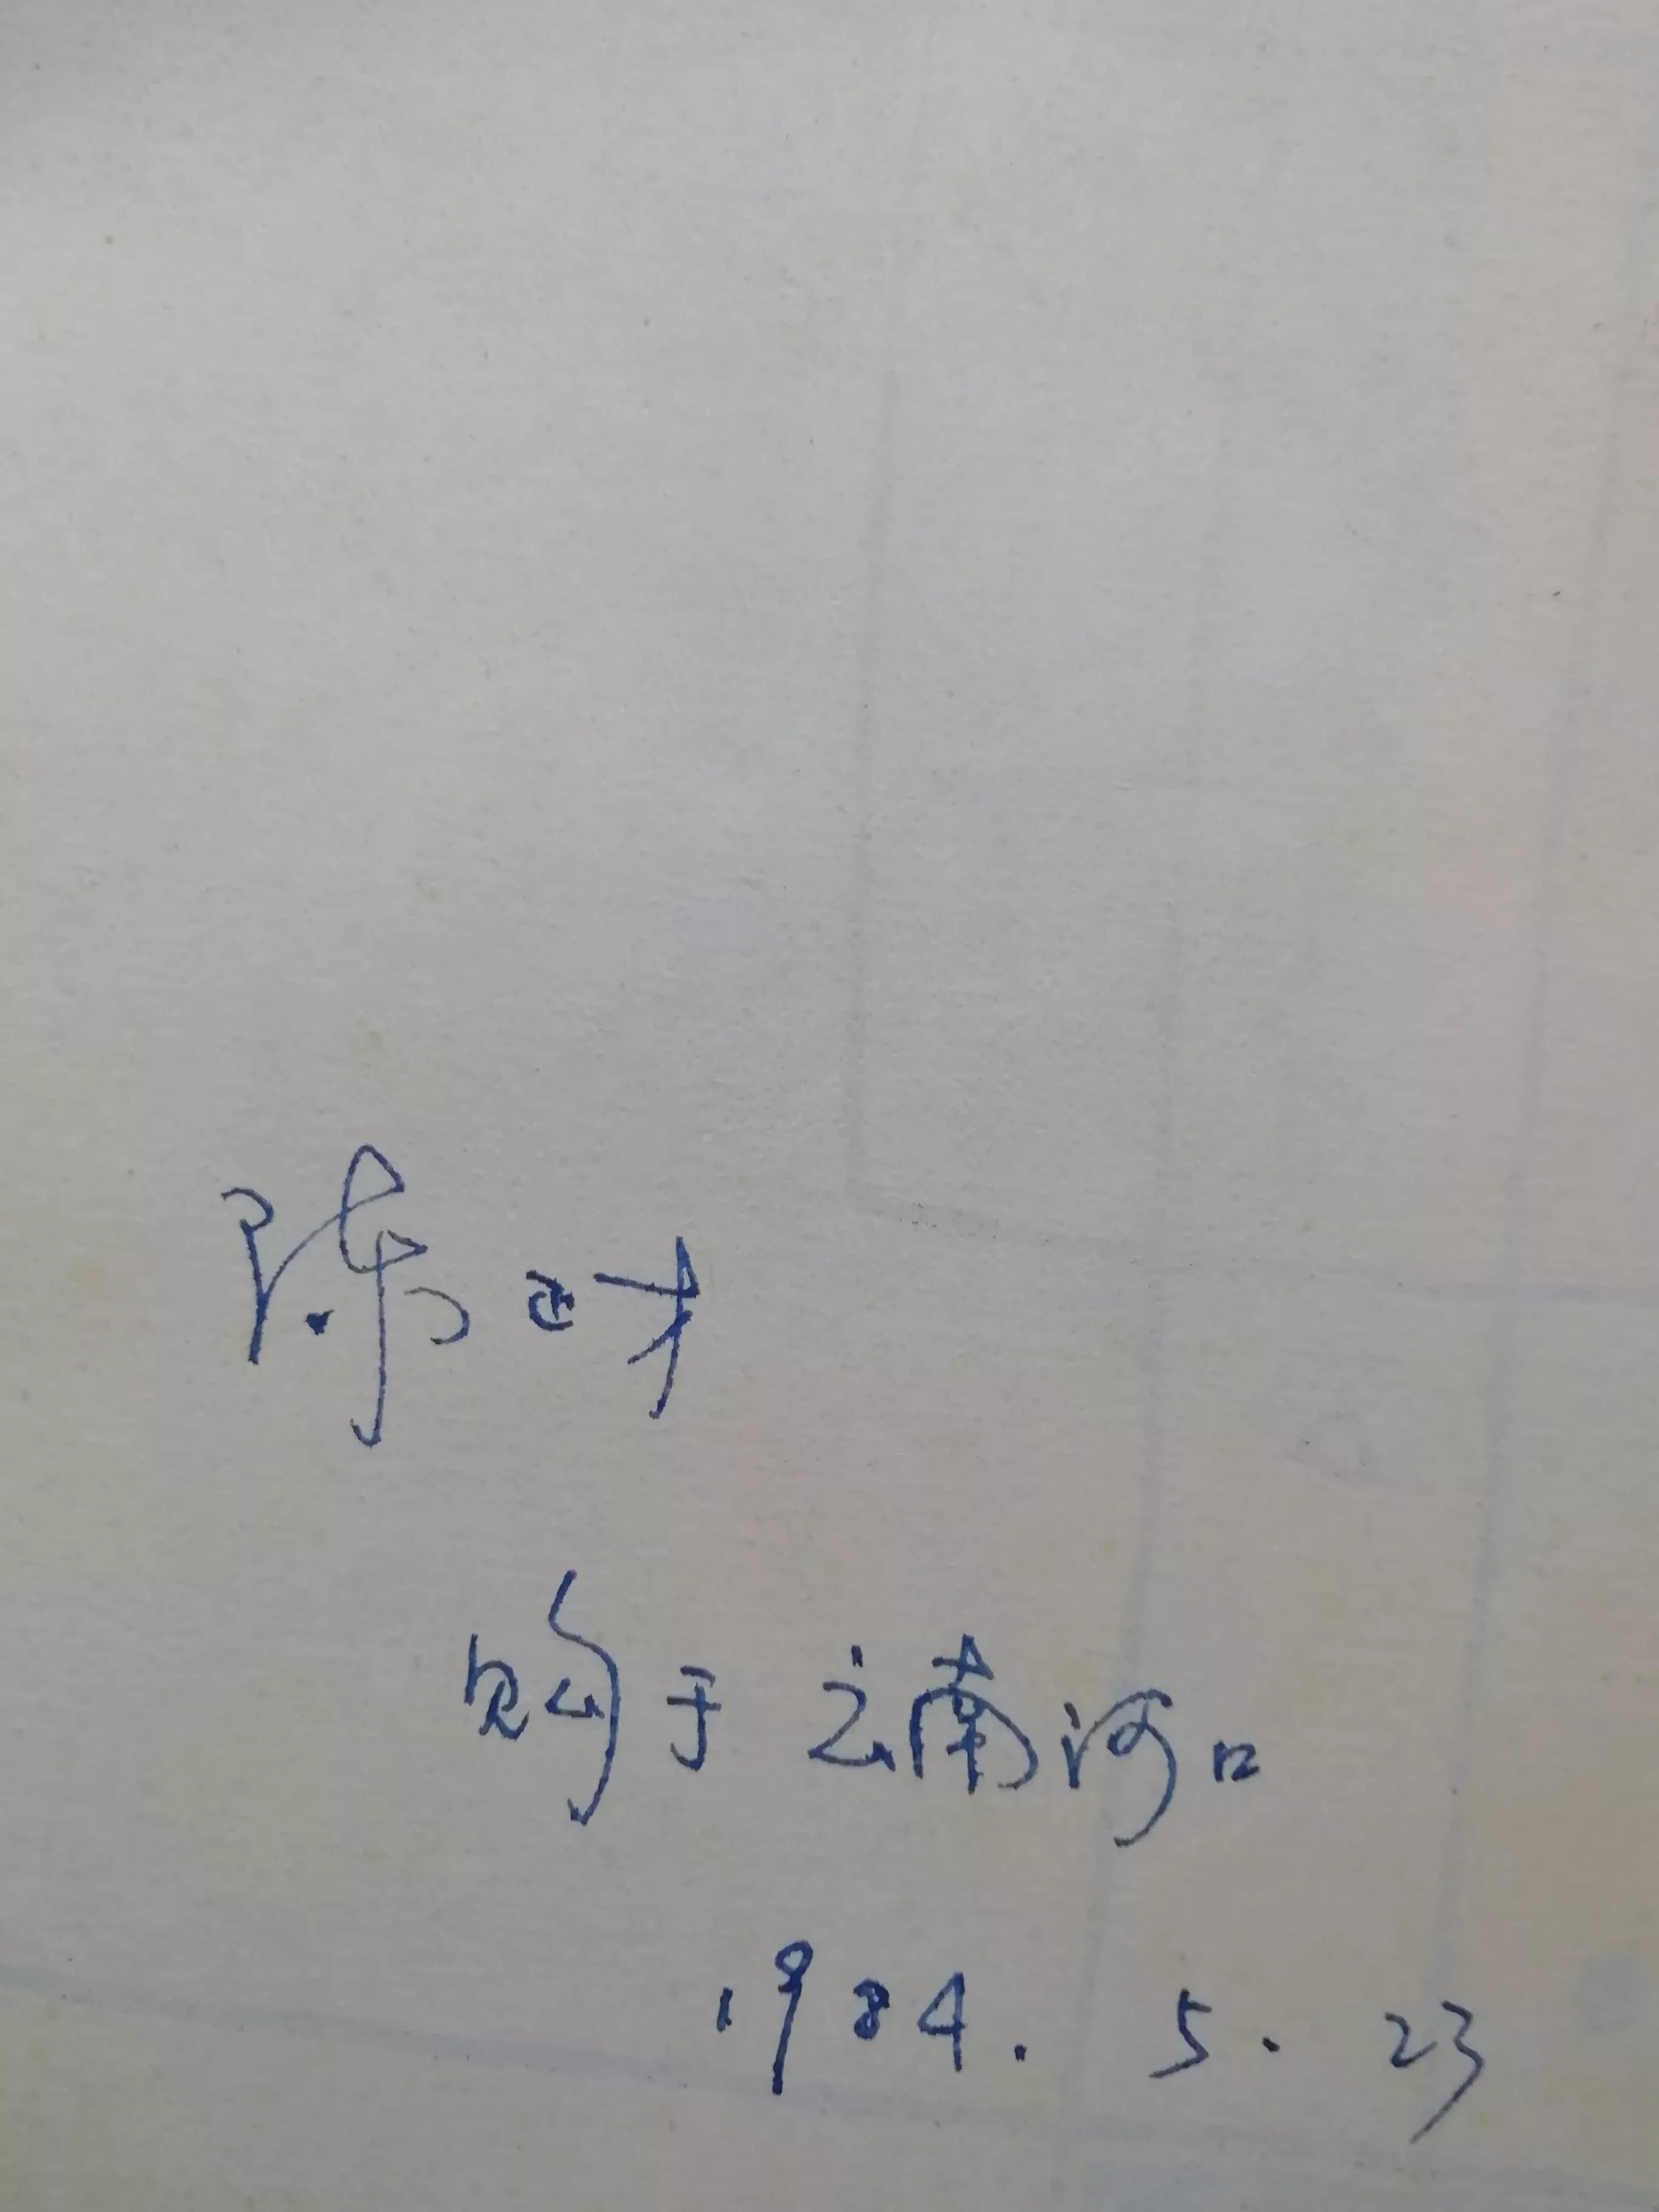 陈正才
购于云南河口
1984. 5. 23